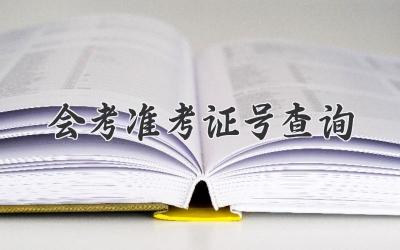 会考准考证号查询